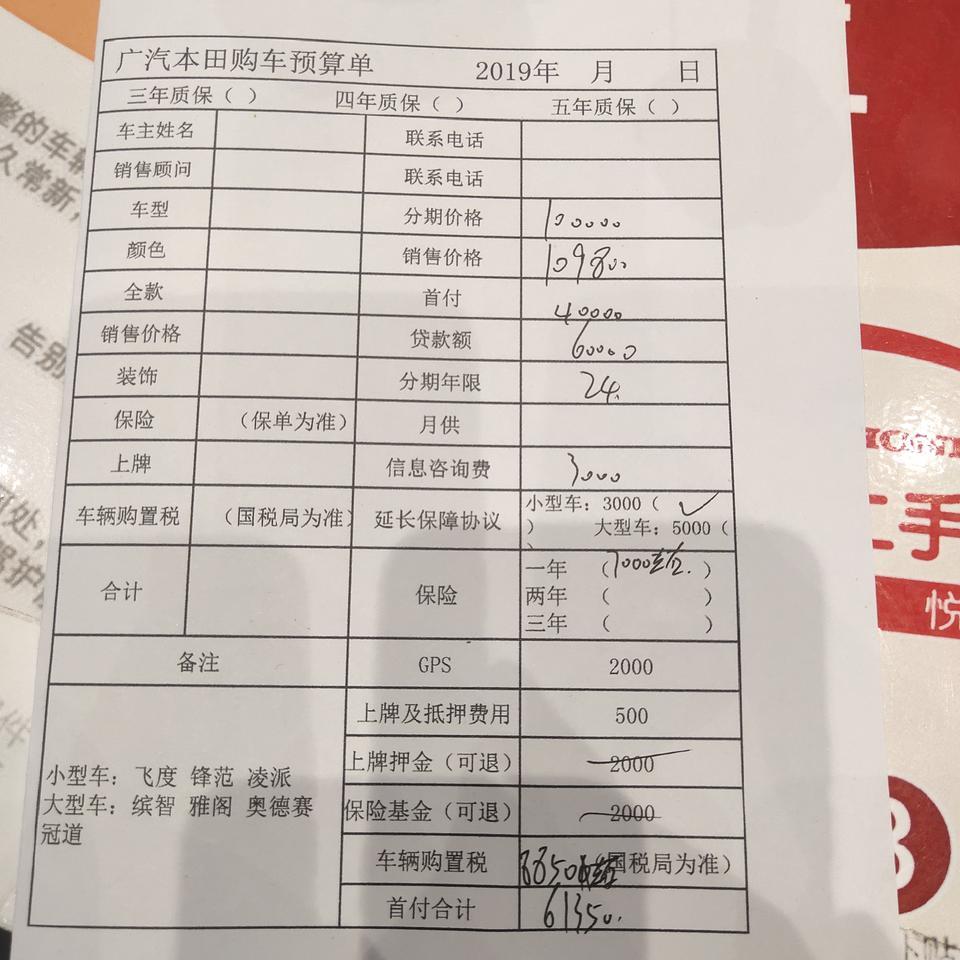 广汽本田购车预算单 2019年 月 日
三年质保（ ） 四年质保（ ） 五年质保（ ）
车主姓名 联系电话
销售顾问 联系电话
车型 分期价格 100000
颜色 销售价格 109800
全款 首付 40000
销售价格 贷款额 60000
装饰 分期年限 24.
保险 （保单为准） 月供
上牌 信息咨询费 3000
车辆购置税 （国税局为准） 延长保障协议 小型车：3000（ ✓
） 大型车：5000（
）
合计 保险 一年 （7000左右.）
两年 （ ）
三年 （ ）
备注 GPS 2000
上牌及抵押费用 500
上牌押金（可退） 2000
小型车： 飞度 锋范 凌派
大型车：缤智 雅阁 奥德赛
冠道
保险基金（可退） 2000
车辆购置税 8850 国税局为准）
首付合计 61350.
整的车辆
久常新，
告别
可处，
驾护
件
HON
二手
悦